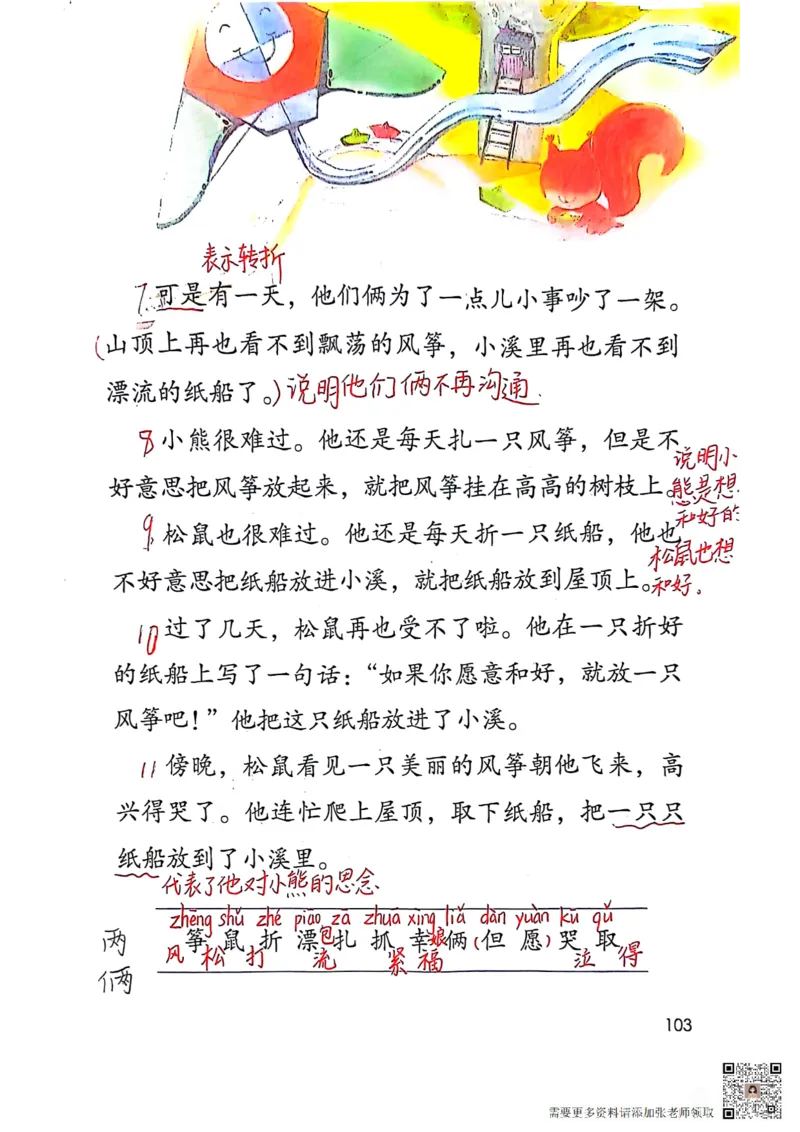 表示转折
7 可是有一天，他们俩为了一点儿小事吵了一架。
(山顶上再也看不到飘荡的风筝，小溪里再也看不到
漂流的纸船了。)说明他们俩不再沟通.
8 小熊很难过。他还是每天扎一只风筝，但是不
好意思把风筝放起来，就把风筝挂在高高的树枝上。
说明小
熊是想
和好的
9 松鼠也很难过。他还是每天折一只纸船，他也
不好意思把纸船放进小溪，就把纸船放到屋顶上。
松鼠也想
和好.
10 过了几天，松鼠再也受不了啦。他在一只折好
的纸船上写了一句话：“如果你愿意和好，就放一只
风筝吧！”他把这只纸船放进了小溪。
11 傍晚，松鼠看见一只美丽的风筝朝他飞来，高
兴得哭了。他连忙爬上屋顶，取下纸船，把一只只
纸船放到了小溪里。
代表了他对小熊的思念
zhēng shǔ zhé piāo zā zhuā xìng liǎ dàn yuàn kū qǔ
筝 鼠 折 漂 包扎 抓 幸 娘俩 (但 愿) 哭 取
风 松 打 流 紧 福 泣 得
两
俩
103
需要更多资料请添加张老师领取